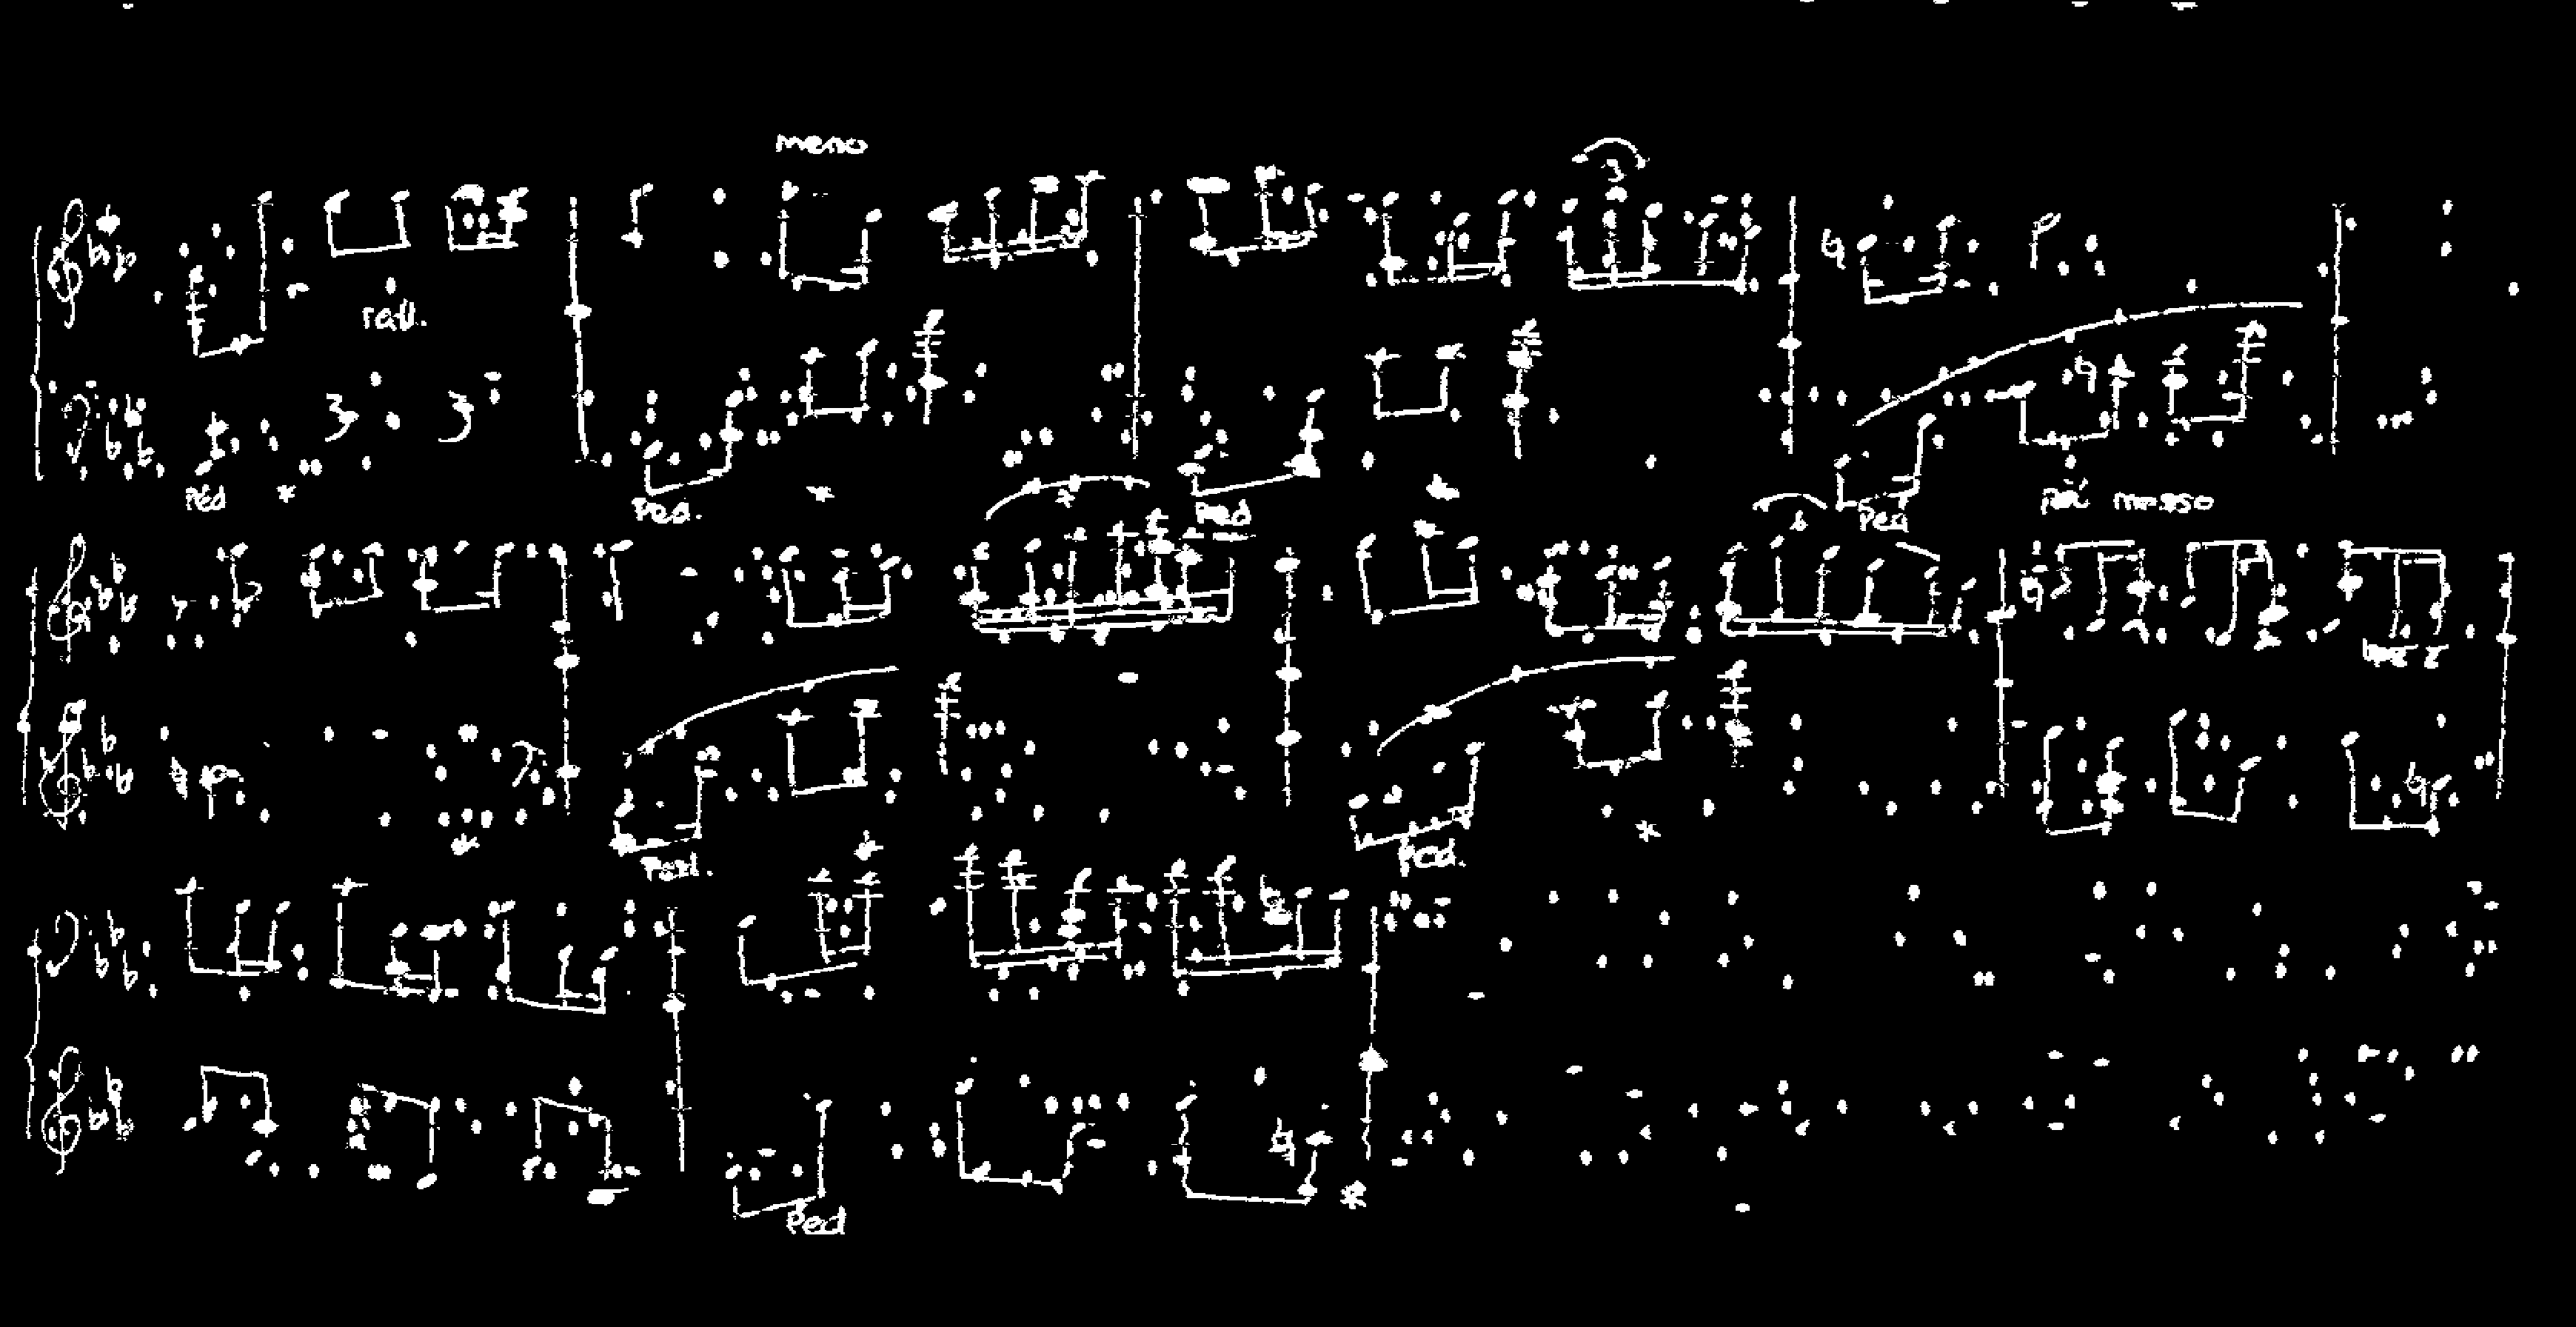 meno
3
rall.
Ped * Ped. * * Ped Ped più mosso
6
* Ped. Ped. *
Ped *